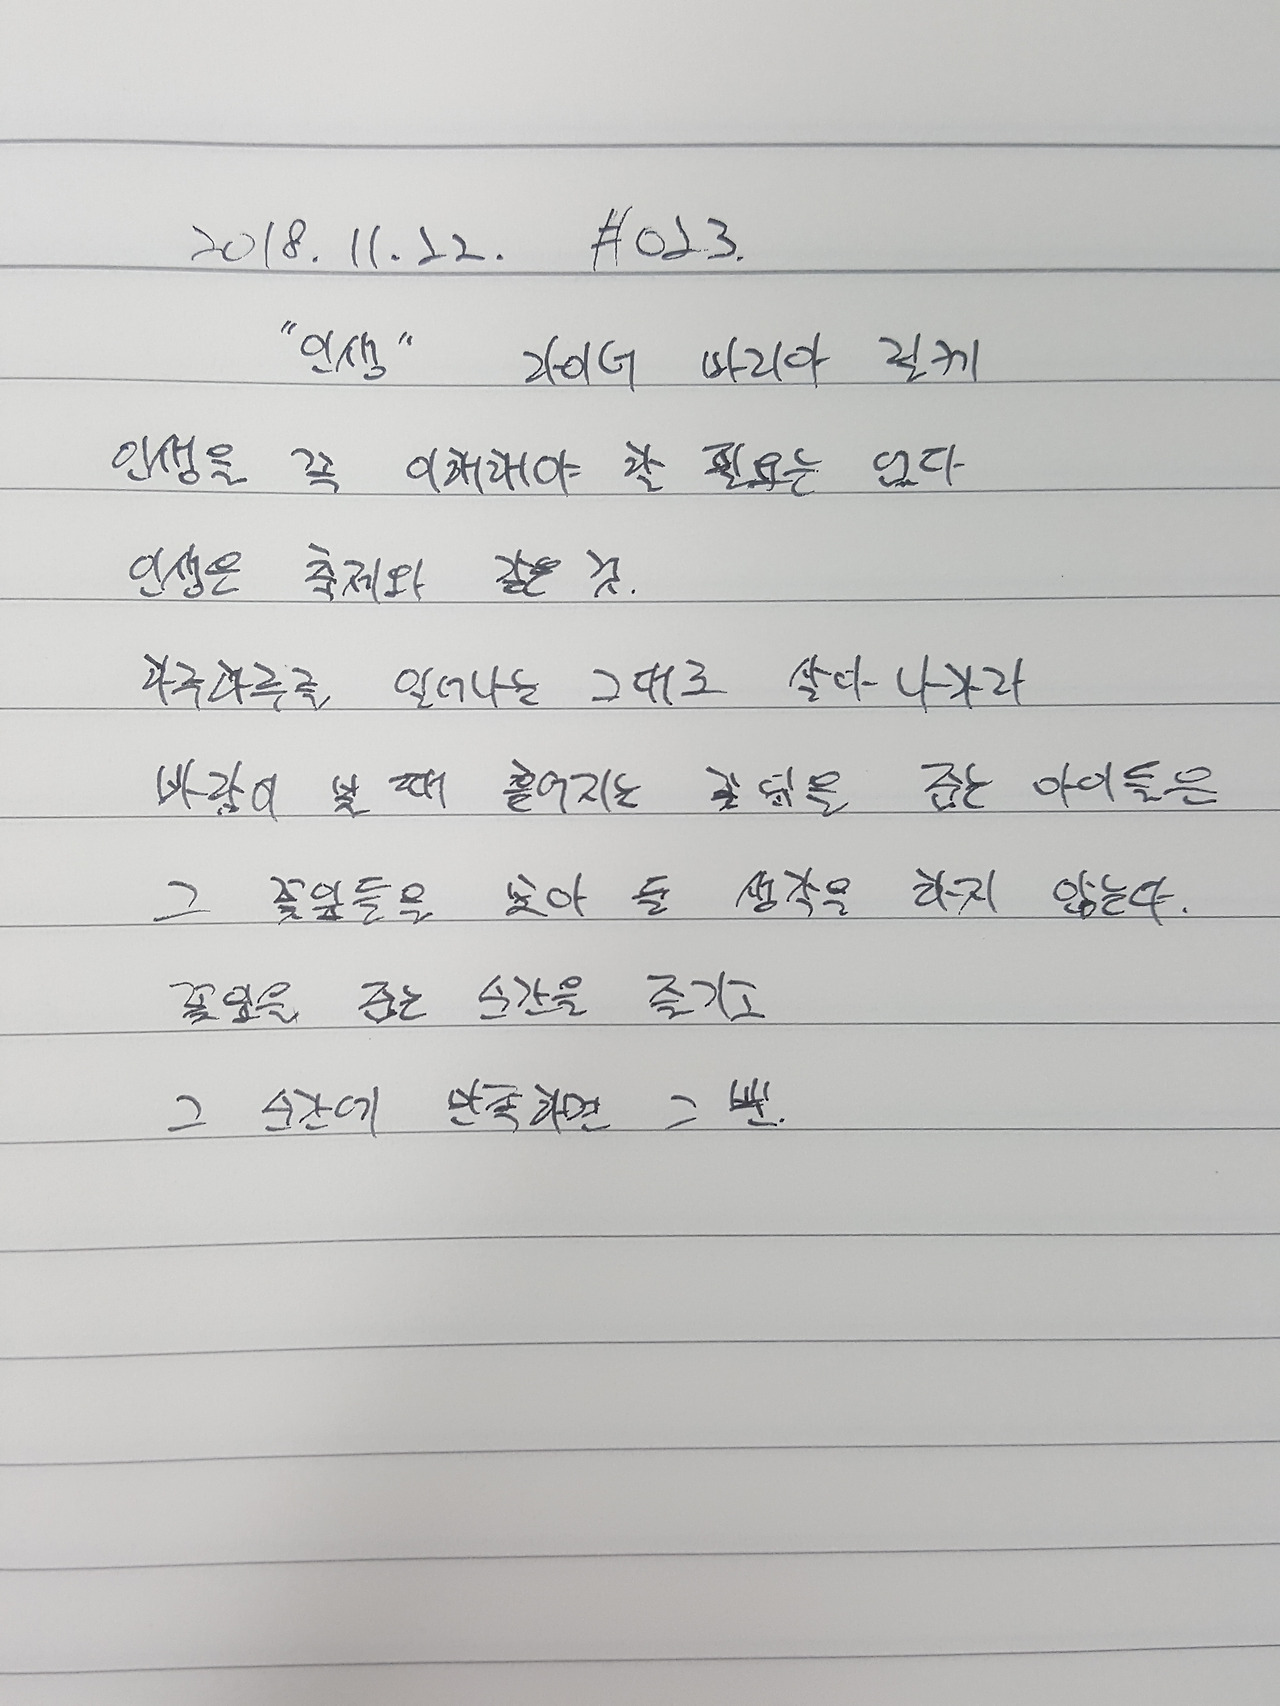 2018. 11. 22. #023.
"인생" 라이너 마리아 릴케
인생을 꼭 이해해야 할 필요는 없다
인생은 축제와 같은 것.
하루하루를 일어나는 그대로 살아 나가라
바람이 불 때 흩어지는 꽃잎을 줍는 아이들은
그 꽃잎들을 모아 둘 생각을 하지 않는다.
꽃잎을 줍는 순간을 즐기고
그 순간에 만족하면 그 뿐.